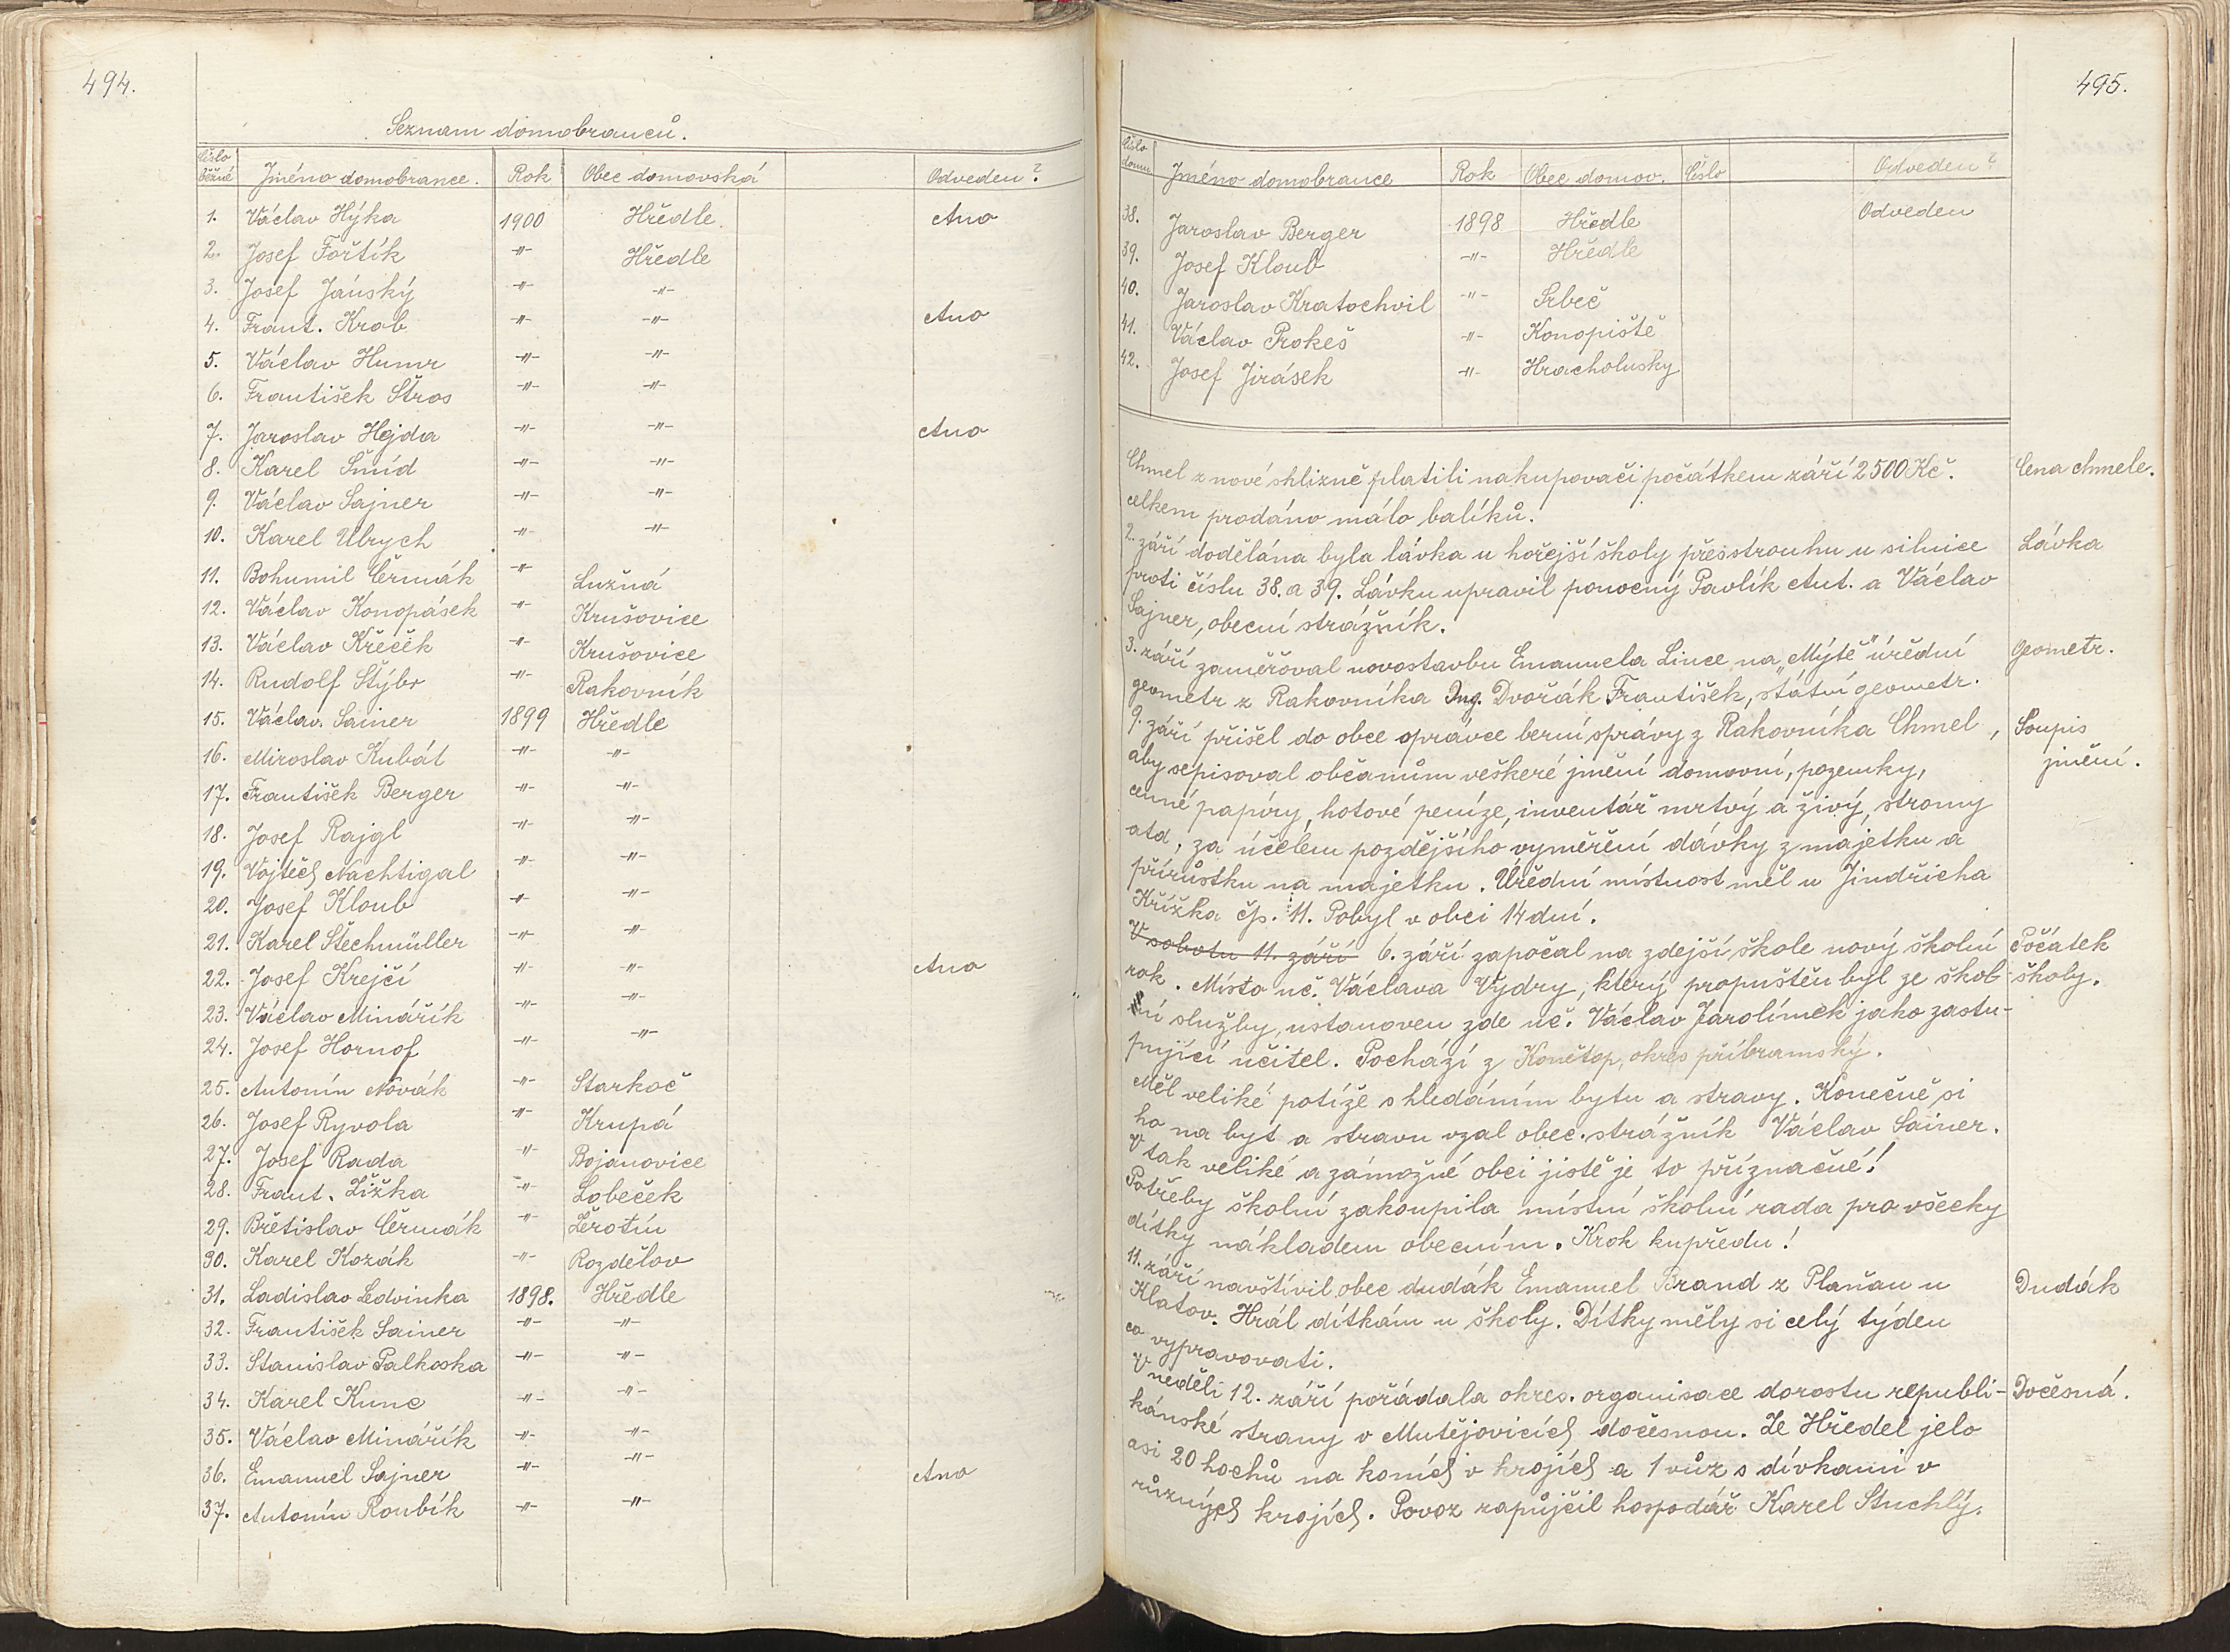 494.
Seznam domobranců.
Číslo běžné Jméno domobrance. Rok Obec domovská Odveden?
1. Václav Hýka 1900 Hředle Ano
2. Josef Fořtík -"- Hředle
3. Josef Jánský -"- -"-
4. Frant. Krob -"- -"- Ano
5. Václav Humr -"- -"-
6. František Štros -"- -"-
7. Jaroslav Hejda -"- -"- Ano
8. Karel Šmíd -"- -"-
9. Václav Sajner -"- -"-
10. Karel Ulrych -"- -"-
11. Bohumil Čermák -"- Lužná
12. Václav Konopásek -"- Krušovice
13. Václav Křeček -"- Krušovice
14. Rudolf Štýbr -"- Rakovník
15. Václav Sainer 1899 Hředle
16. Miroslav Kubát -"- -"-
17. František Berger -"- -"-
18. Josef Rajgl -"- -"-
19. Vojtěch Nachtigal -"- -"-
20. Josef Kloub -"- -"-
21. Karel Štechmüller -"- -"-
22. Josef Krejčí -"- -"- Ano
23. Václav Minářík -"- -"-
24. Josef Hornof -"- -"-
25. Antonín Novák -"- Starkoč
26. Josef Ryvola -"- Krupá
27. Josef Rada -"- Bojanovice
28. Frant. Žižka -"- Lobeček
29. Břetislav Čermák -"- Žerotín
30. Karel Kozák -"- Rozdělov
31. Ladislav Ledvinka 1898. Hředle
32. František Sainer -"- -"-
33. Stanislav Palkoska -"- -"-
34. Karel Kunc -"- -"-
35. Václav Minářík -"- -"-
36. Emanuel Sajner -"- -"- Ano
37. Antonín Roubík -"- -"-
495.
Číslo domu Jméno domobrance Rok Obec domov. Číslo Odveden?
38. Jaroslav Berger 1898 Hředle Odveden
39. Josef Kloub -"- Hředle
40. Jaroslav Kratochvil -"- Srbeč
41. Václav Prokeš -"- Konopiště
42. Josef Jirásek -"- Hracholusky
Chmel z nové shlizně platili nakupovači počátkem září 2500 Kč. Cena chmele.
celkem prodáno málo balíků.
2. září dodělána byla lávka u hořejší školy přes strouhu u silnice Lávka
proti číslu 38. a 39. Lávku upravil ponocný Pavlík Ant. a Václav
Sajner, obecní strážník.
3. září zaměřoval novostavbu Emanuela Lince na „Mýtě" úřední Geometr.
geometr z Rakovníka Ing. Dvořák František, státní geometr.
9. září přišel do obce správce berní správy z Rakovníka Chmel, Soupis
aby sepisoval občanům veškeré jmění domovní, pozemky, jmění.
cenné papíry, hotové peníze, inventář mrtvý a živý, stromy
atd, za účelem pozdějšího vyměření dávky z majetku a
přírůstku na majetku. Úřední místnost měl u Jindřicha
Křížka čp. 11. Pobyl v obci 14 dní.
V sobotu 11. září 6. září započal na zdejší škole nový školní Počátek
rok. Místo uč. Václava Vydry, který propuštěn byl ze škol- školy.
ní služby, ustanoven zde uč. Václav Jarolímek jako zastu-
pující učitel. Pochází z Konětop, okres příbramský.
Měl veliké potíže s hledáním bytu a stravy. Konečně si
ho na byt a stravu vzal obec. strážník Václav Sainer.
V tak veliké a zámožné obci jistě je to příznačné!
Potřeby školní zakoupila místní školní rada pro všecky
dítky nákladem obecním. Krok kupředu!
11. září navštívil obec dudák Emanuel Brand z Plaňan u Dudák
Klatov. Hrál dítkám u školy. Dítky měly si celý týden
co vypravovati.
V neděli 12. září pořádala okres. organisace dorostu republi- Dočesná.
kánské strany v Mutějovicích dočesnou. Ze Hředel jelo
asi 20 hochů na koních v krojích a 1 vůz s dívkami v
různých krojích. Povoz zapůjčil hospodář Karel Stuchlý.